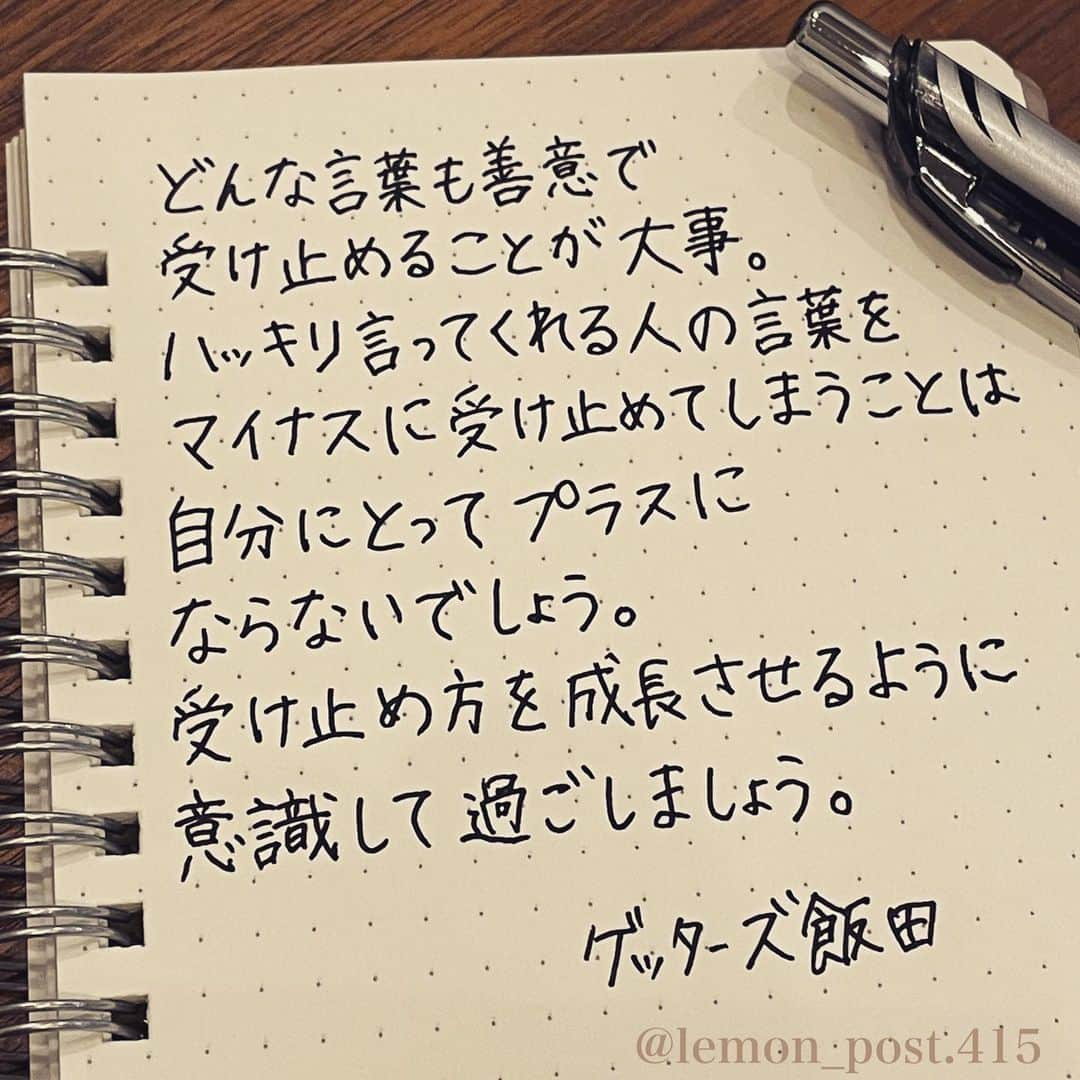 どんな言葉も善意で
受け止めることが大事。
ハッキリ言ってくれる人の言葉を
マイナスに受け止めてしまうことは
自分にとってプラスに
ならないでしょう。
受け止め方を成長させるように
意識して過ごしましょう。
ゲッターズ飯田
@lemon_post.415